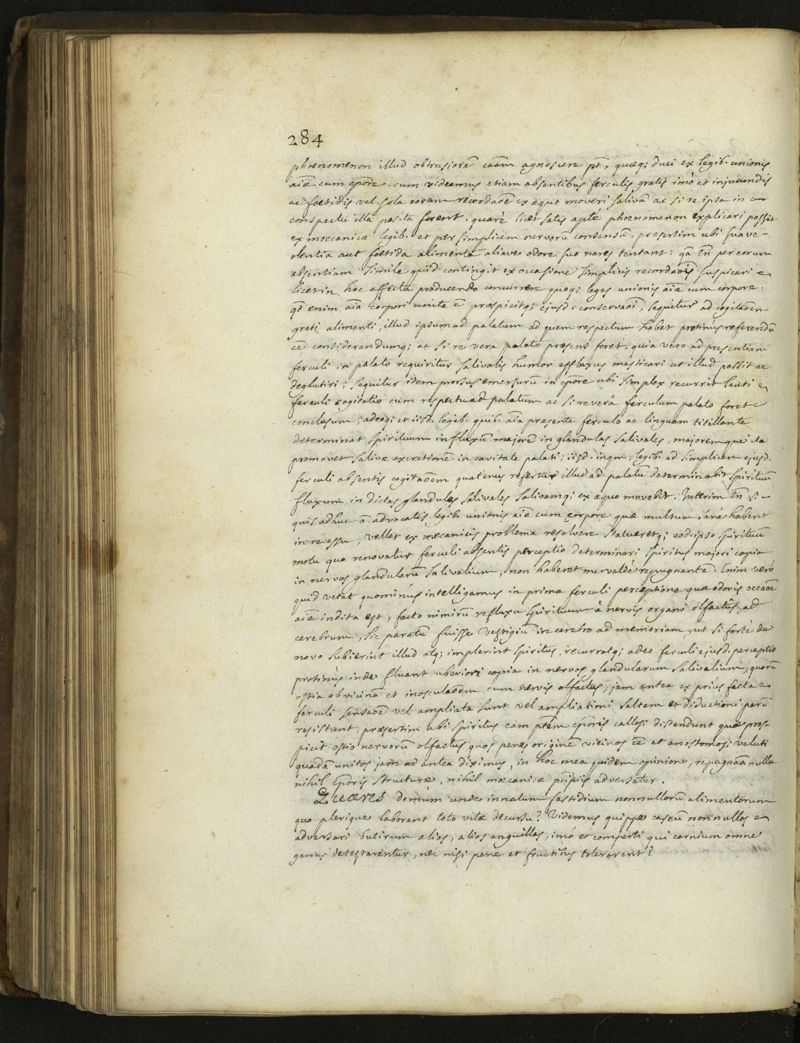 284
phoenomenon illud obtrusiorē caām agnoscere pt, quæq; duci ex legib. unionis
aiæ cum cpore. cum videamus etiam absentibus ferculis gratis imò et injucundis
ac foetidis vel sola eoram recordaōe ex æquo moveri salivā ac si re ipsa in
conspectu illa posita forent. quare licet satis apte phoenomenon explicari possit
ex meccanicæ legib. et per simplicem nervorū consensū, præsertim ubi suave-
olentia aut foetida alimenta aliave odore suo nares tentant: qa tn per eorum
absentiam simile quid contingit ex occasione simplicis recordaōis suspicari
licet in hoc affectu producendo concurrere quoq; leges unionis aiæ cum corpore.
qd enim aia corpori unita ē prospicitq; ejusd. conservaōi, sequitur ad cogitaōem
grati alimenti, illud ipsum ad palatum ad quem respectum habet protinus referendū
ēē considerandumq; ac si re vera palato præsens foret. quia vero ad præsentiam
ferculi in palato requiritur salivalis humor effluxus masticari ut illud possit ac
deglutiri; sequitur idem prorsus emersurū in cpore ubi simplex recurrit lauti
ferculi cogitatio cum respectu ad palatum ac si revera ferculum palato foret
conclusum; adeoq; et iisd. legib. quib. aia præsente ferculo ac linguam titillante
determinat spirituum influxū majorē in glandulas salivales, majoremque ita
promovet salivæ excretionē in cavitate palati; iisd. inqm. legib. ad simplicem ejusd.
ferculi absentis cogitaōem quatenus refertur illud ad palatū determinabit spirituū
fluxum in dictas glandulas salivales salivamq; ex æquo movebit. Interim tn si
quis adhuc ā advocatis legib. unionis aiæ cum corpore quæ multum sane habent
in recessu, vellet ex mecanicis problema resolvere statueretq; eod. ipso spirituū
motu quo renovatur ferculi absentis perceptio determinari spiritus majori copia
in nervos glandularū salivalium, non haberet me valde repugnantē. Enim vero
quid vetat quominus intelligamus in prima ferculi perceptione quæ odoris occaōe
aiæ indita est, facto nimirū refluxu spirituum à nervis organi olfactus ad
cerebrum, sic paratū fuisse vestigiū in cerebro ad memoriam, ut si forte de
novo subierint illud atq; implerint spiritus, recurratq; adeo ferculi ejusd. perceptio
protinus inde fluant uberiori copia in nervos glandularum salivalium, quorū
ostia ob viciniā et inosculaōem cum nervis olfactus, jam antea ex prius facta
ferculi sensaōe vel ampliata sunt vel ampliationi saltem et diductioni parū
resistant, præsertim ubi spiritus eam ptem cporis callosi discendunt quæ pros-
picit ostio nervorū olfactus quos pene origine vicinos ēē et anastomosi veluti
quadā unitos jam ad antea diximus, in hoc mea quidem opinione, repugnaā nulla
nihil cporis structuræ, nihil mecanicæ pnpiis adversatur.
Quæres demum unde innatum fastidium nonnullorū alimentorum
quo plerique laborant toto vitæ decursu? Videmus quippe caseū nonnullos
adversari butirum alios, alios anguillas, imo et comperti qui carnium omne
genus detestarentur, nec nisi pane et fructibus tolerarent?